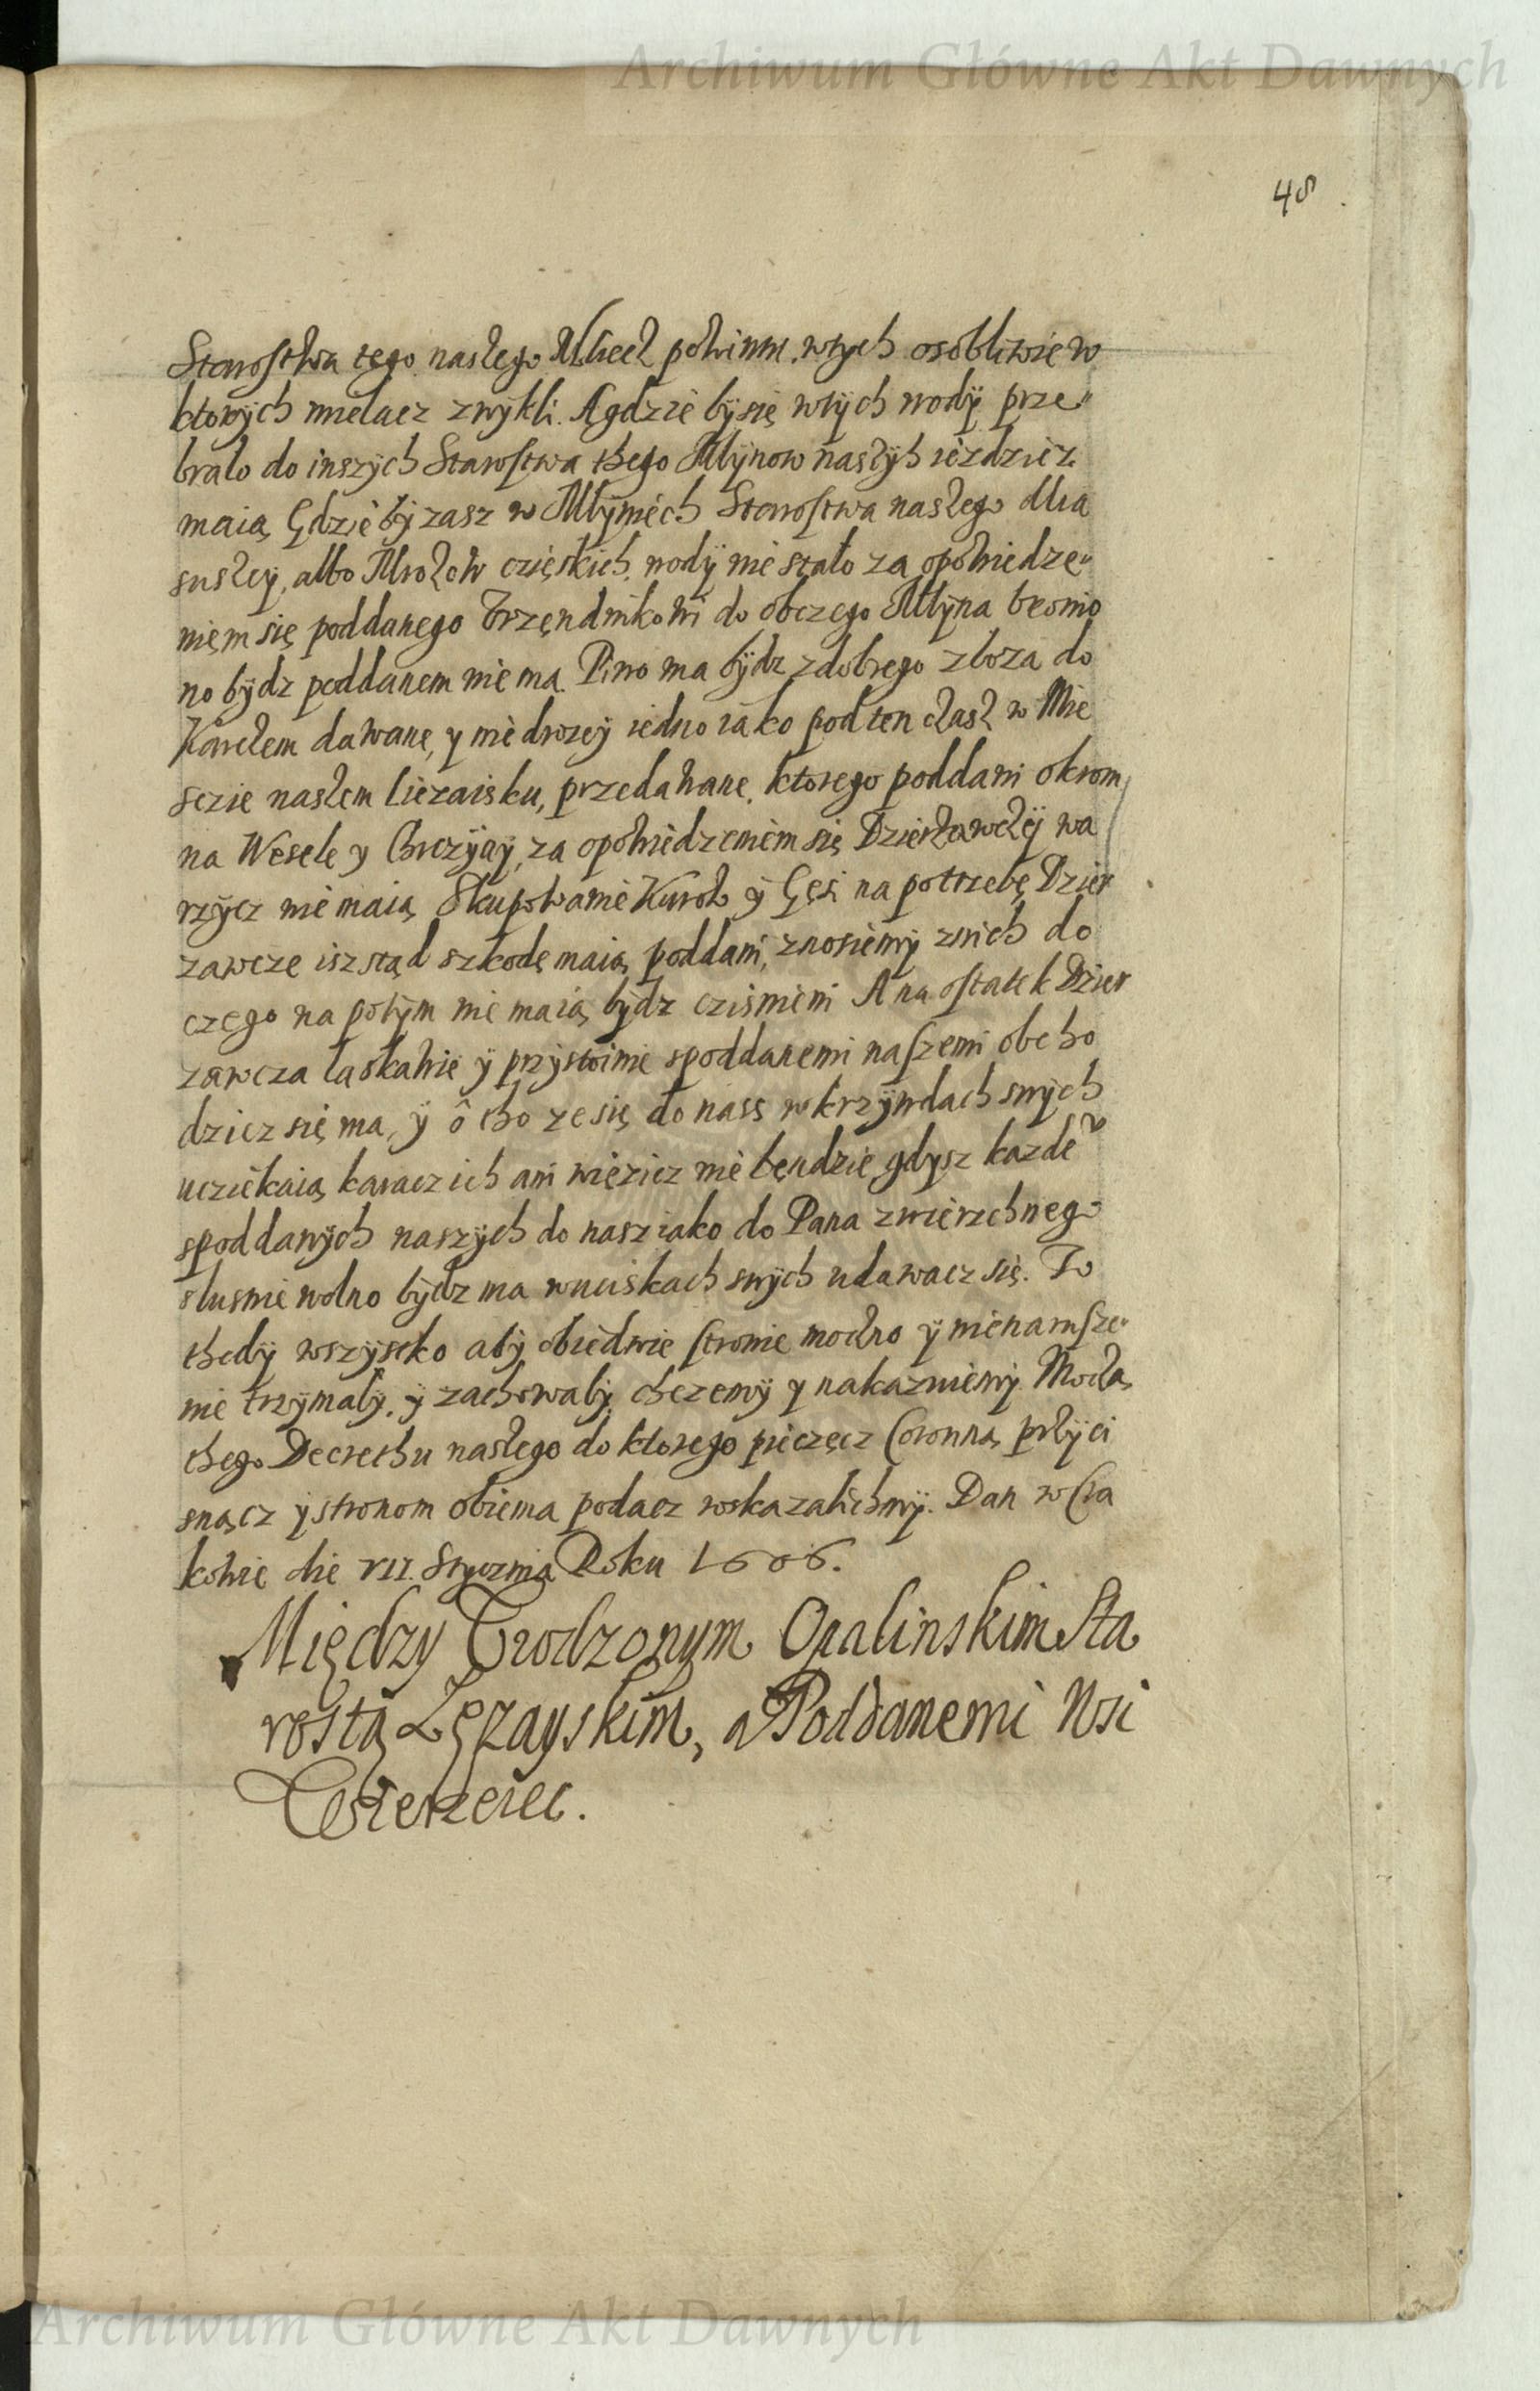 Archiwum Główne Akt Dawnych
48
Starostwa tego naszego Mliecz powinni, wtych osobliwie w
ktorych mielacz zwykli. A gdzie by się wtych wody prze„
brało do inszych Starostwa thego Młynow naszych iezdzicz
maią, Gdzie by zasz w Młyniech Starostwa naszego dlia
suszey, albo Mrozow częskich, wody nie stało za opowiedze„
niem się poddanego Vrzęndnikowi do obczego Młyna bronio
no bydz poddanem nie ma. Piwo ma bydz z dobrego zboza do
Karczem dawane, y nie drozey iedno iako pod ten czasz w Mie
sczie naszem Liezaisku, przedawane, ktorego poddani okrom
na Wesele y Chrzciny, za opowiedzeniem się Dzierzawczy wa
rzycz nie maią. Skupowanie Kurow y Gęsi na potrzebę Dzier
zawcze isz stąd szkodę maią poddani, znosiemy z nich do
czego na potym nie maią bydz czisnieni A na ostatek Dzier
zawcza laskawie y przystoinie spoddanemi naszemi obcho
dzicz się ma, y o tho ze się do nass w krzywdach swych
ucziekaią karacz ich ani więzicz nie bęndzie gdysz kazdeᵛ
spoddanych naszych do nasz iako do Pana zwierzchnego
slusnie wolno bydz ma w uciskach swych udawacz się. To
thedy wszystko aby obiedwie stronie moczno y nienarusze„
nie trzymały, y zachowały chczemy y nakazuiemy Moczą
thego Decrethu naszego do ktorego pieczęcz Coronną przyci
snącz y stronom obiema podacz wskazalichmy. Dan w Cra
kowie die VII. Stycznia Roku 1606.
Między Vrodzonym Opalinskim Sta
rostą Lęzayskim, a Poddanemi Wsi
Archiwum Główne Akt Dawnych